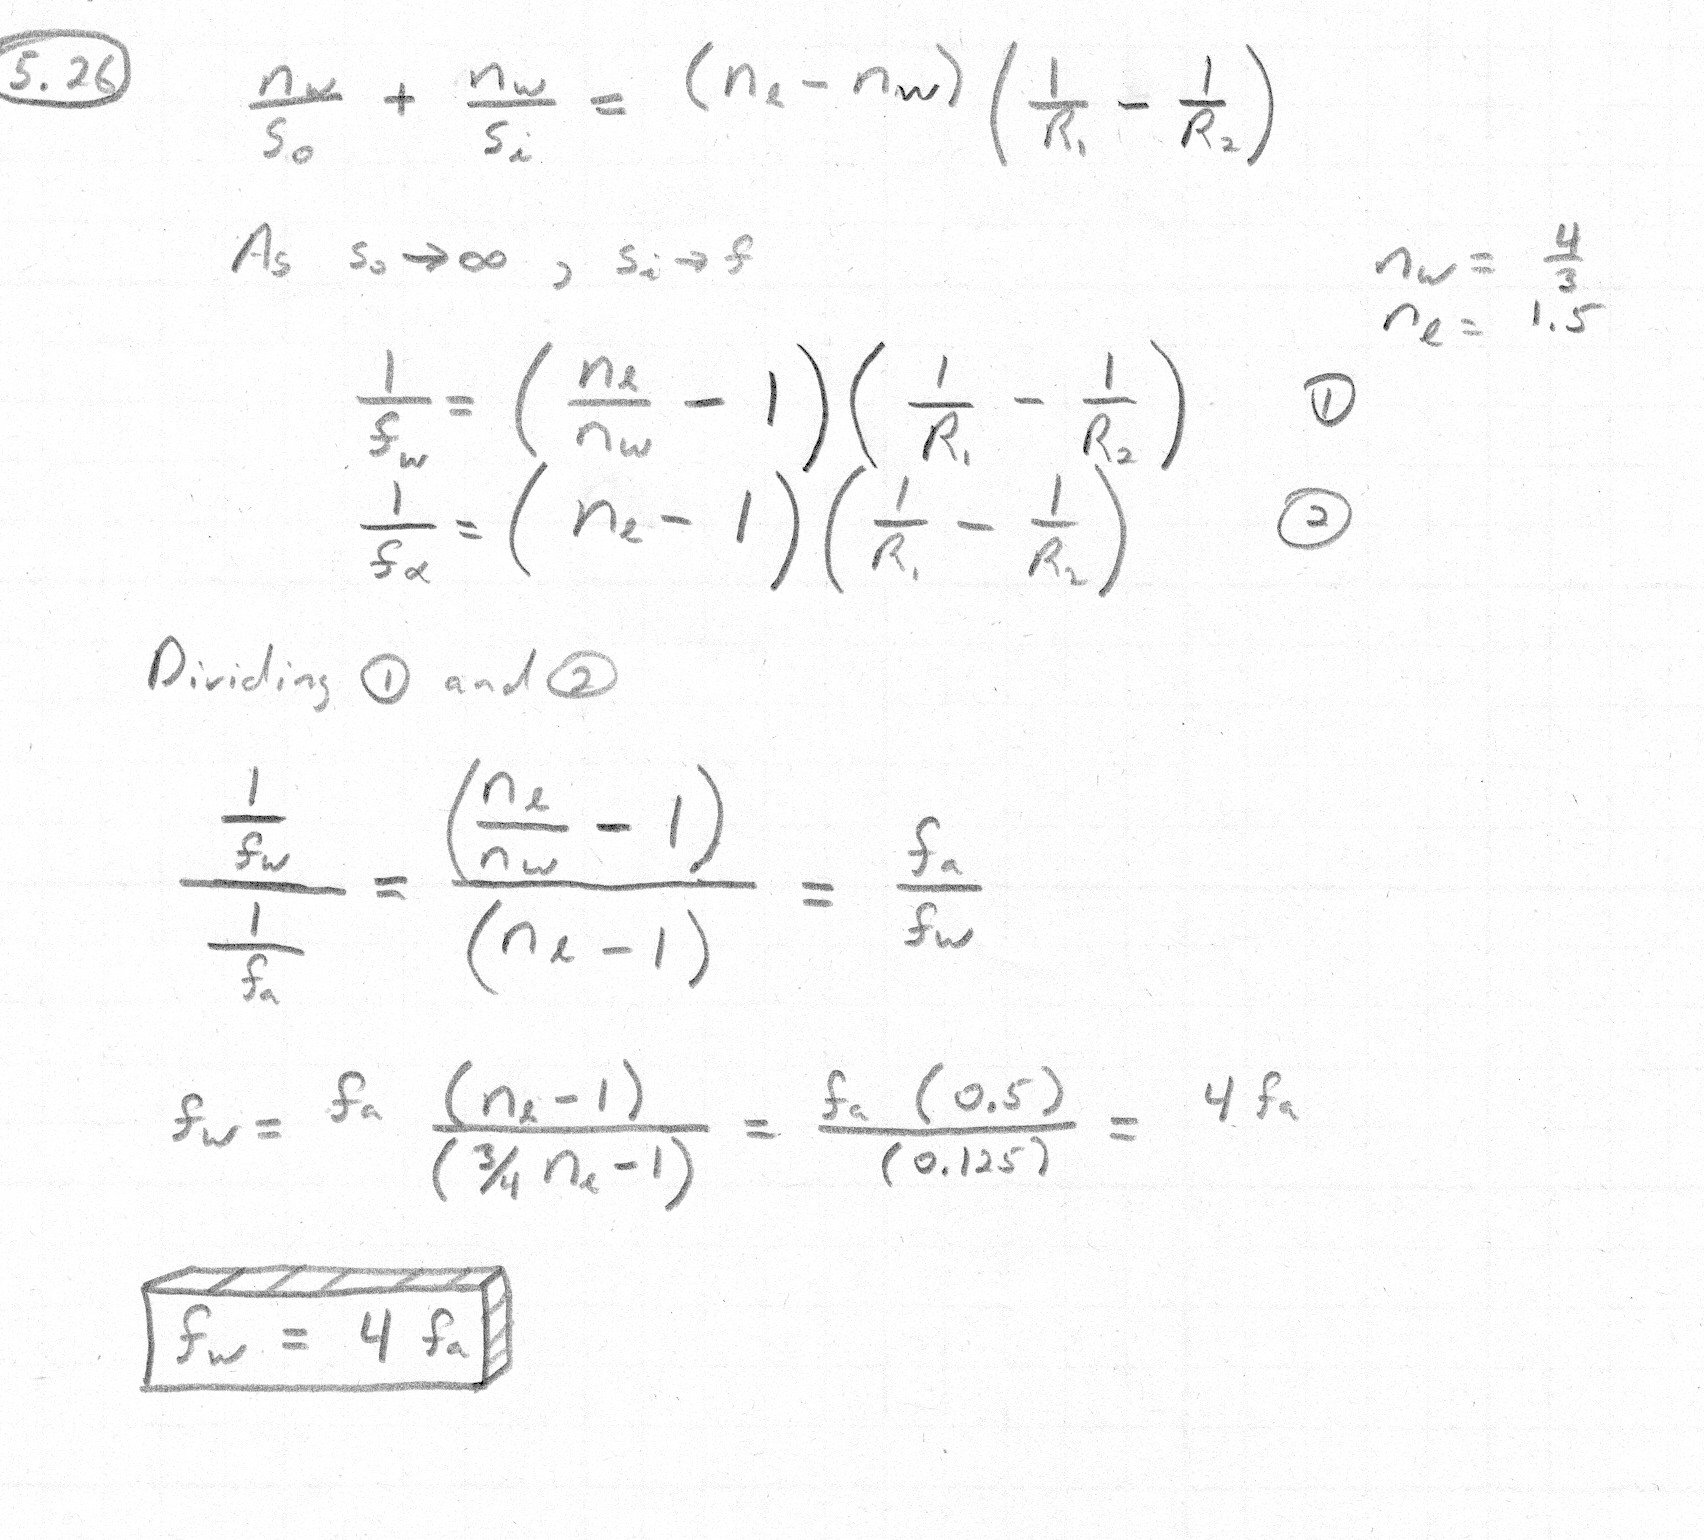 5.26
n_w/s_o + n_w/s_i = (n_l - n_w)(1/R_1 - 1/R_2)
As s_o → ∞ , s_i → f
n_w = 4/3
n_l = 1.5
1/f_w = (n_l/n_w - 1)(1/R_1 - 1/R_2) ①
1/f_a = (n_l - 1)(1/R_1 - 1/R_2) ②
Dividing ① and ②
(1/f_w)/(1/f_a) = (n_l/n_w - 1)/(n_l - 1) = f_a/f_w
f_w = f_a (n_l - 1)/(3/4 n_l - 1) = f_a (0.5)/(0.125) = 4 f_a
f_w = 4 f_a